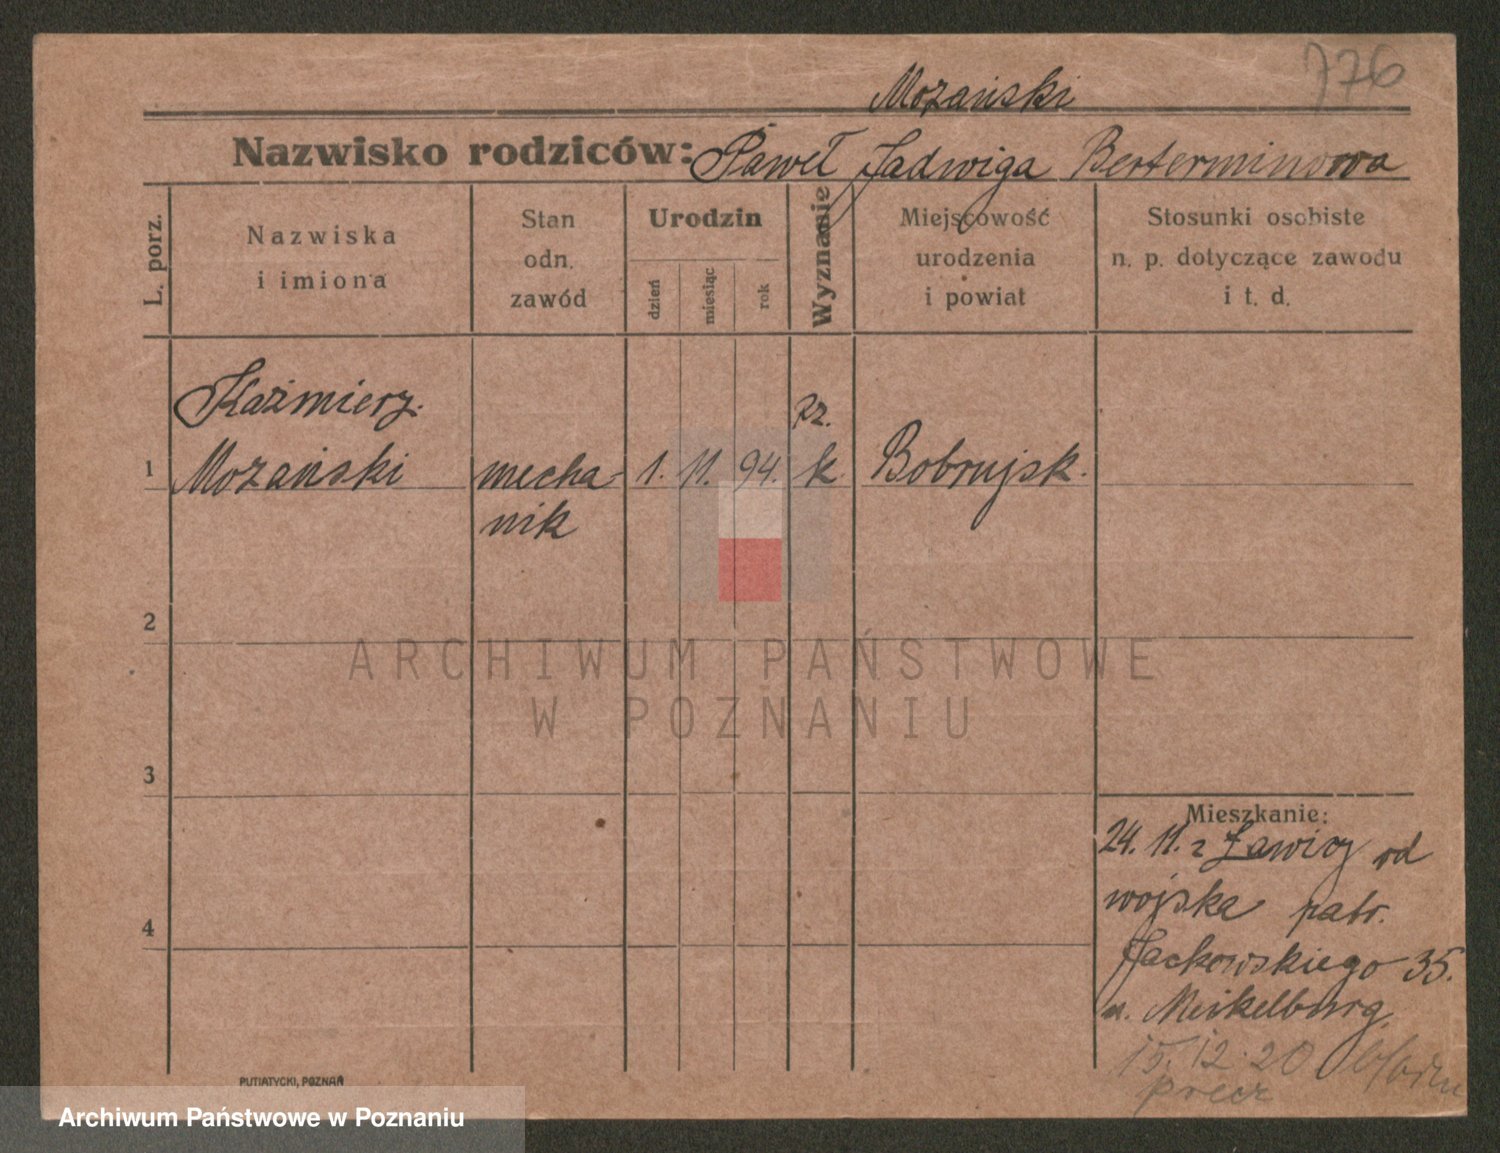 776
Mozański
Nazwisko rodziców: Paweł Jadwiga Berterminowa
L. porz.
Nazwiska
i imiona
Stan
odn.
zawód
Urodzin
dzień
miesiąc
rok
Wyznanie
Miejscowość
urodzenia
i powiat
Stosunki osobiste
n. p. dotyczące zawodu
i t. d.
Kaźmierz
1 Mozański mecha- 1. 11. 94. rz. k. Bobrujsk.
nik
2
3
4
Mieszkanie:
24. 11. z Ławicy od
wojska patr.
Jackowskiego 35.
u. Meikelburg.
15. 12. 20
precz
ARCHIWUM PAŃSTWOWE
W POZNANIU
PUTIATYCKI, POZNAŃ
Archiwum Państwowe w Poznaniu